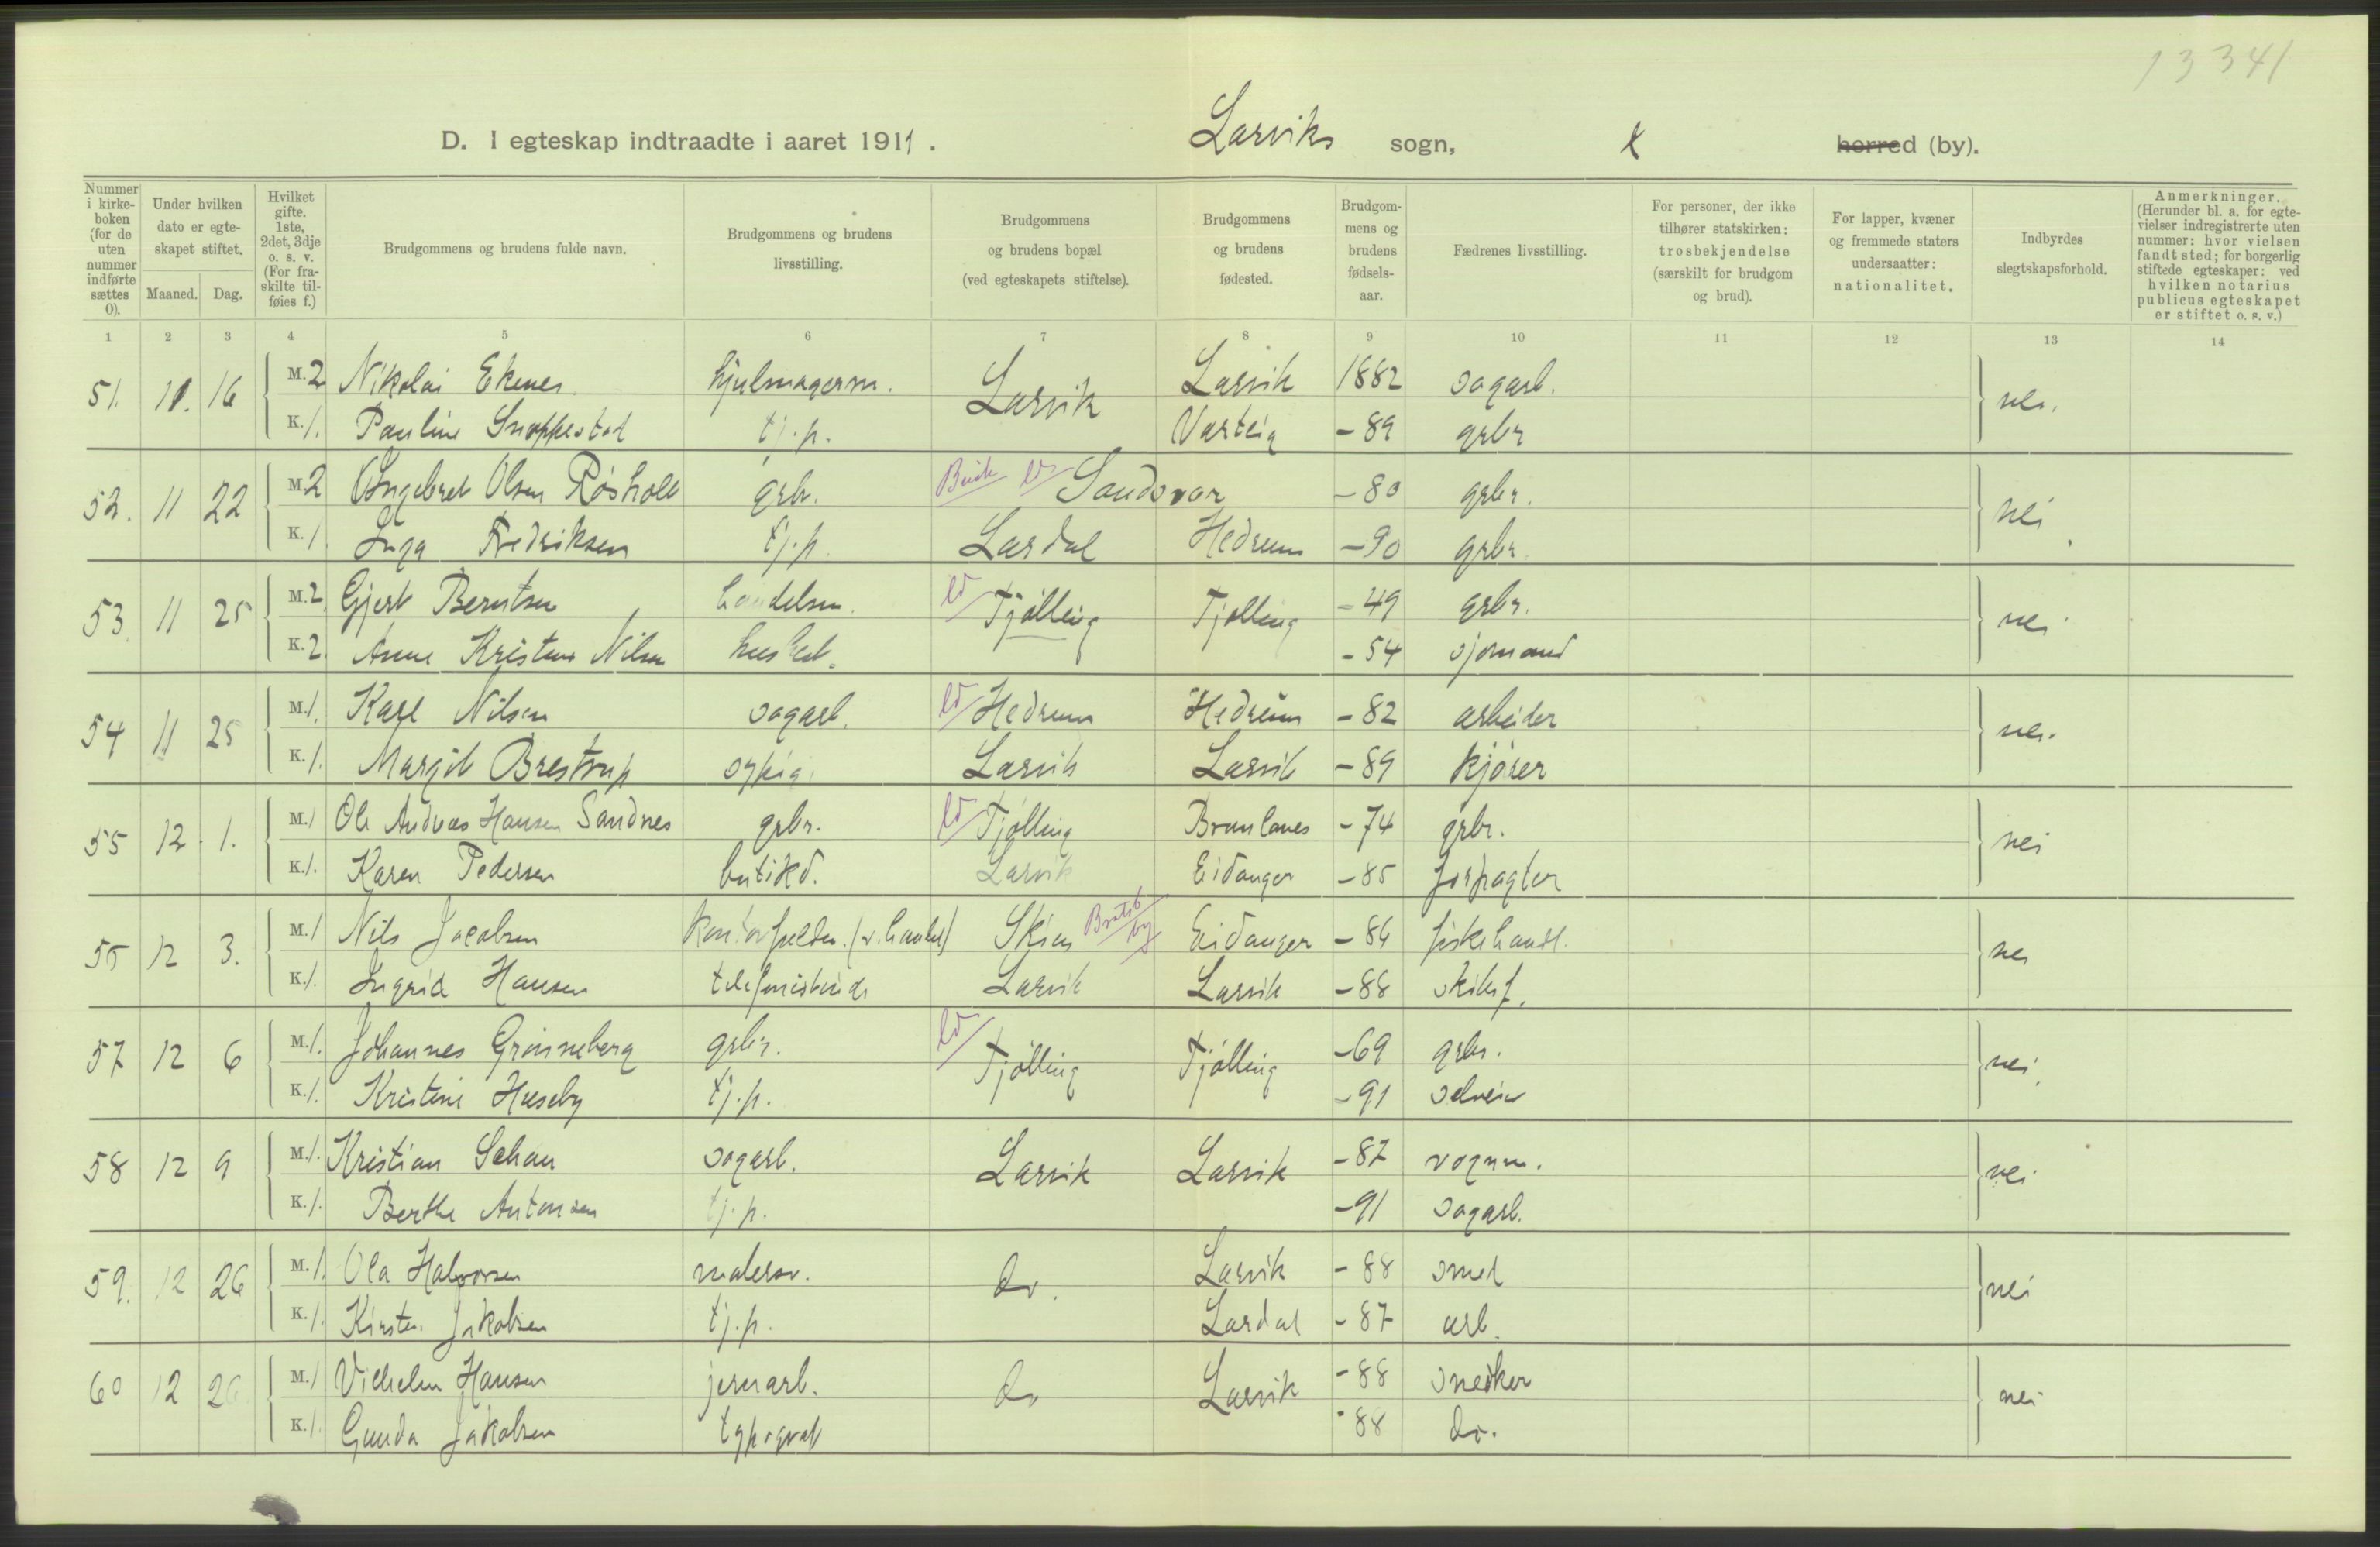 13341
D. I egteskap indtraadte i aaret 1911. Larviks sogn, herred (by).
Nummer i kirkeboken (for de uten nummer indførte sættes 0).
Under hvilken dato er egteskapet stiftet.
Maaned. Dag.
Hvilket gifte. 1ste, 2det, 3dje o. s. v. (For fraskilte tilføies f.)
Brudgommens og brudens fulde navn.
Brudgommens og brudens livsstilling.
Brudgommens og brudens bopæl (ved egteskapets stiftelse).
Brudgommens og brudens fødested.
Brudgommens og brudens fødselsaar.
Fædrenes livsstilling.
For personer, der ikke tilhører statskirken: trosbekjendelse (særskilt for brudgom og brud).
For lapper, kvæner og fremmede staters undersaatter: nationalitet.
Indbyrdes slegtskapsforhold.
Anmerkninger. (Herunder bl. a. for egtevielser indregistrerte uten nummer: hvor vielsen fandt sted; for borgerlig stiftede egteskaper: ved hvilken notarius publicus egteskapet er stiftet o. s. v.)
1 2 3 4 5 6 7 8 9 10 11 12 13 14
51. 11. 16 M. 2 Nikolai Ekenes hjulmagerm. Larvik Larvik 1882 sagarb. nei.
K. 1. Pauline Snoppestad tj.p. Varteig -89 grbr
52. 11 22 M. 2 Ingebret Olsen Røsholt grbr. Busk ld Sandsvær -80 grbr. nei
K. 1. Inga Fredriksen tj.p. Lardal Hedrum -90 grbr.
53. 11 25 M. 2. Gjert Berntsen handelsm. ld Tjølling Tjølling -49 grbr. nei
K. 2. Anne Kristine Nilsen husbest. -54 sjømand
54 11 25 M. 1. Karl Nilsen sagarb. ld Hedrum Hedrum -82 arbeider nei.
K. 1. Margit Brestrup sypig. Larvik Larvik -89 kjører
55 12. 1. M. 1 Ole Andreas Hansen Sandnes grbr. ld Tjølling Brunlanes -74 grbr. nei
K. 1. Karen Pedersen butikd. Larvik Eidanger -85 forpagter
56 12 3. M. 1 Nils Jacobsen (v. handel) Skien Bratsb by Eidanger -86 fiskehandl. nei
K. 1. Ingrid Hansen Larvik Larvik -88 skibsf.
57 12 6 M. 1. Johannes Grønneberg grbr. ld Tjølling Tjølling -69 grbr. nei.
K. 1. Kristine Huseby tj.p. -91 selveier
58 12 9 M. 1. Kristian Schau sagarb. Larvik Larvik -87 vognm. nei
K. 1. Berthe Antonsen tj.p. -91 sagarb.
59. 12 26 M. 1. Ola Halvorsen malersv. do. Larvik -88 smed nei
K. 1. Kirsten Jakobsen tj.p. Lardal -87 arb.
60 12 26 M. 1 Vilhelm Hansen jernarb. do Larvik -88 snedker nei
K. 1. Gunda Jakobsen typograf -88 do.